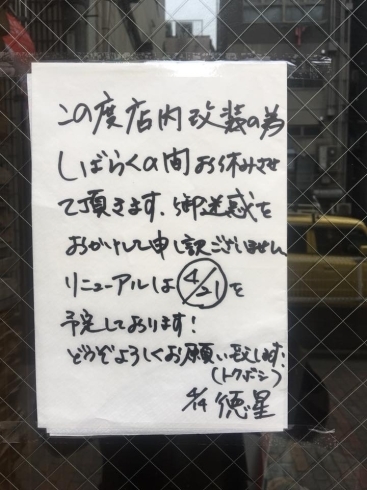 この度店内改装の為
しばらくの間お休みさせ
て頂きます。御迷惑を
おかけして申し訳ございません
リニューアルは4/21を
予定しております!
どうぞよろしくお願い致します。
(トクボシ)
4/14 徳星